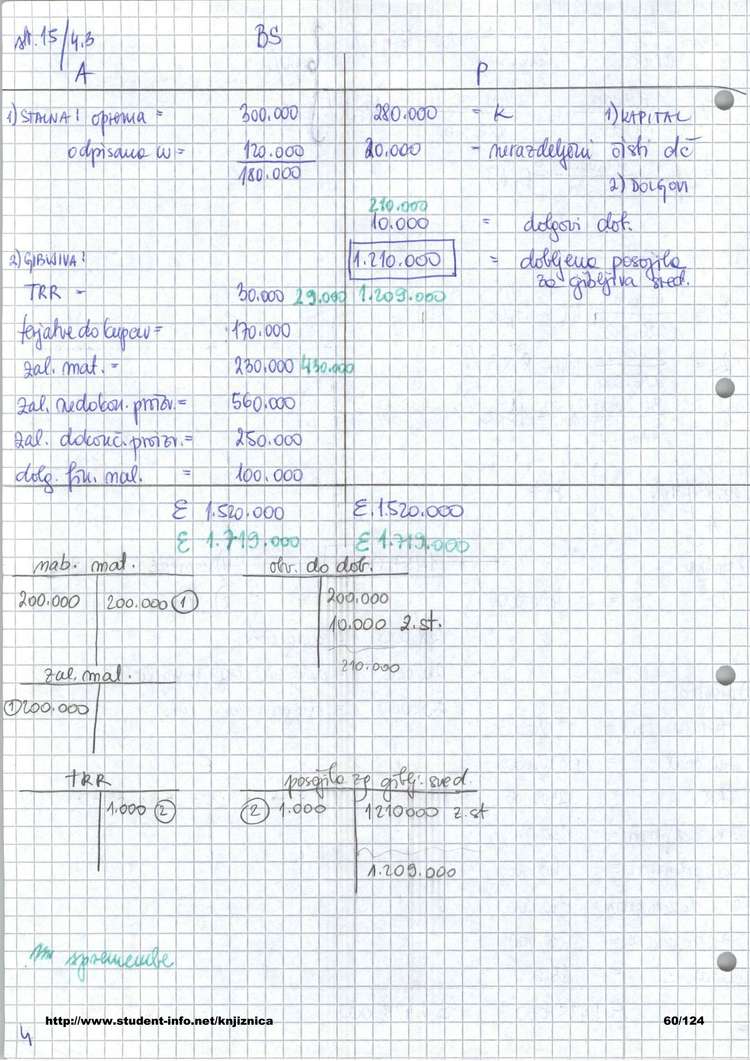 str. 15/4.3 BS
A P
1) STALNA: oprema = 300.000 280.000 = K 1) KAPITAL
odpisana w = 120.000 20.000 - nerazdeljeni čisti dč
180.000 2) DOLGOVI
210.000
10.000 = dolgovi dob.
2) GIBLJIVA: 1.210.000 = dobljena posojila
za gibljiva sred.
TRR = 30.000 29.000 1.209.000
terjatve do kupcev = 170.000
zal. mat. = 230.000 430.000
zal. nedokon. proizv. = 560.000
zal. dokonč. proizv. = 250.000
dolg. fin. nal. = 100.000
Σ 1.520.000 Σ 1.520.000
Σ 1.719.000 Σ 1.719.000
nab. mat. obv. do dob.
200.000 200.000 1 200.000
10.000 z.st.
210.000
zal. mat.
1 200.000
TRR posojilo za giblj. sred.
1.000 2 2 1.000 1210000 z.st
1.209.000
spremembe
http://www.student-info.net/knjiznica 60/124
4